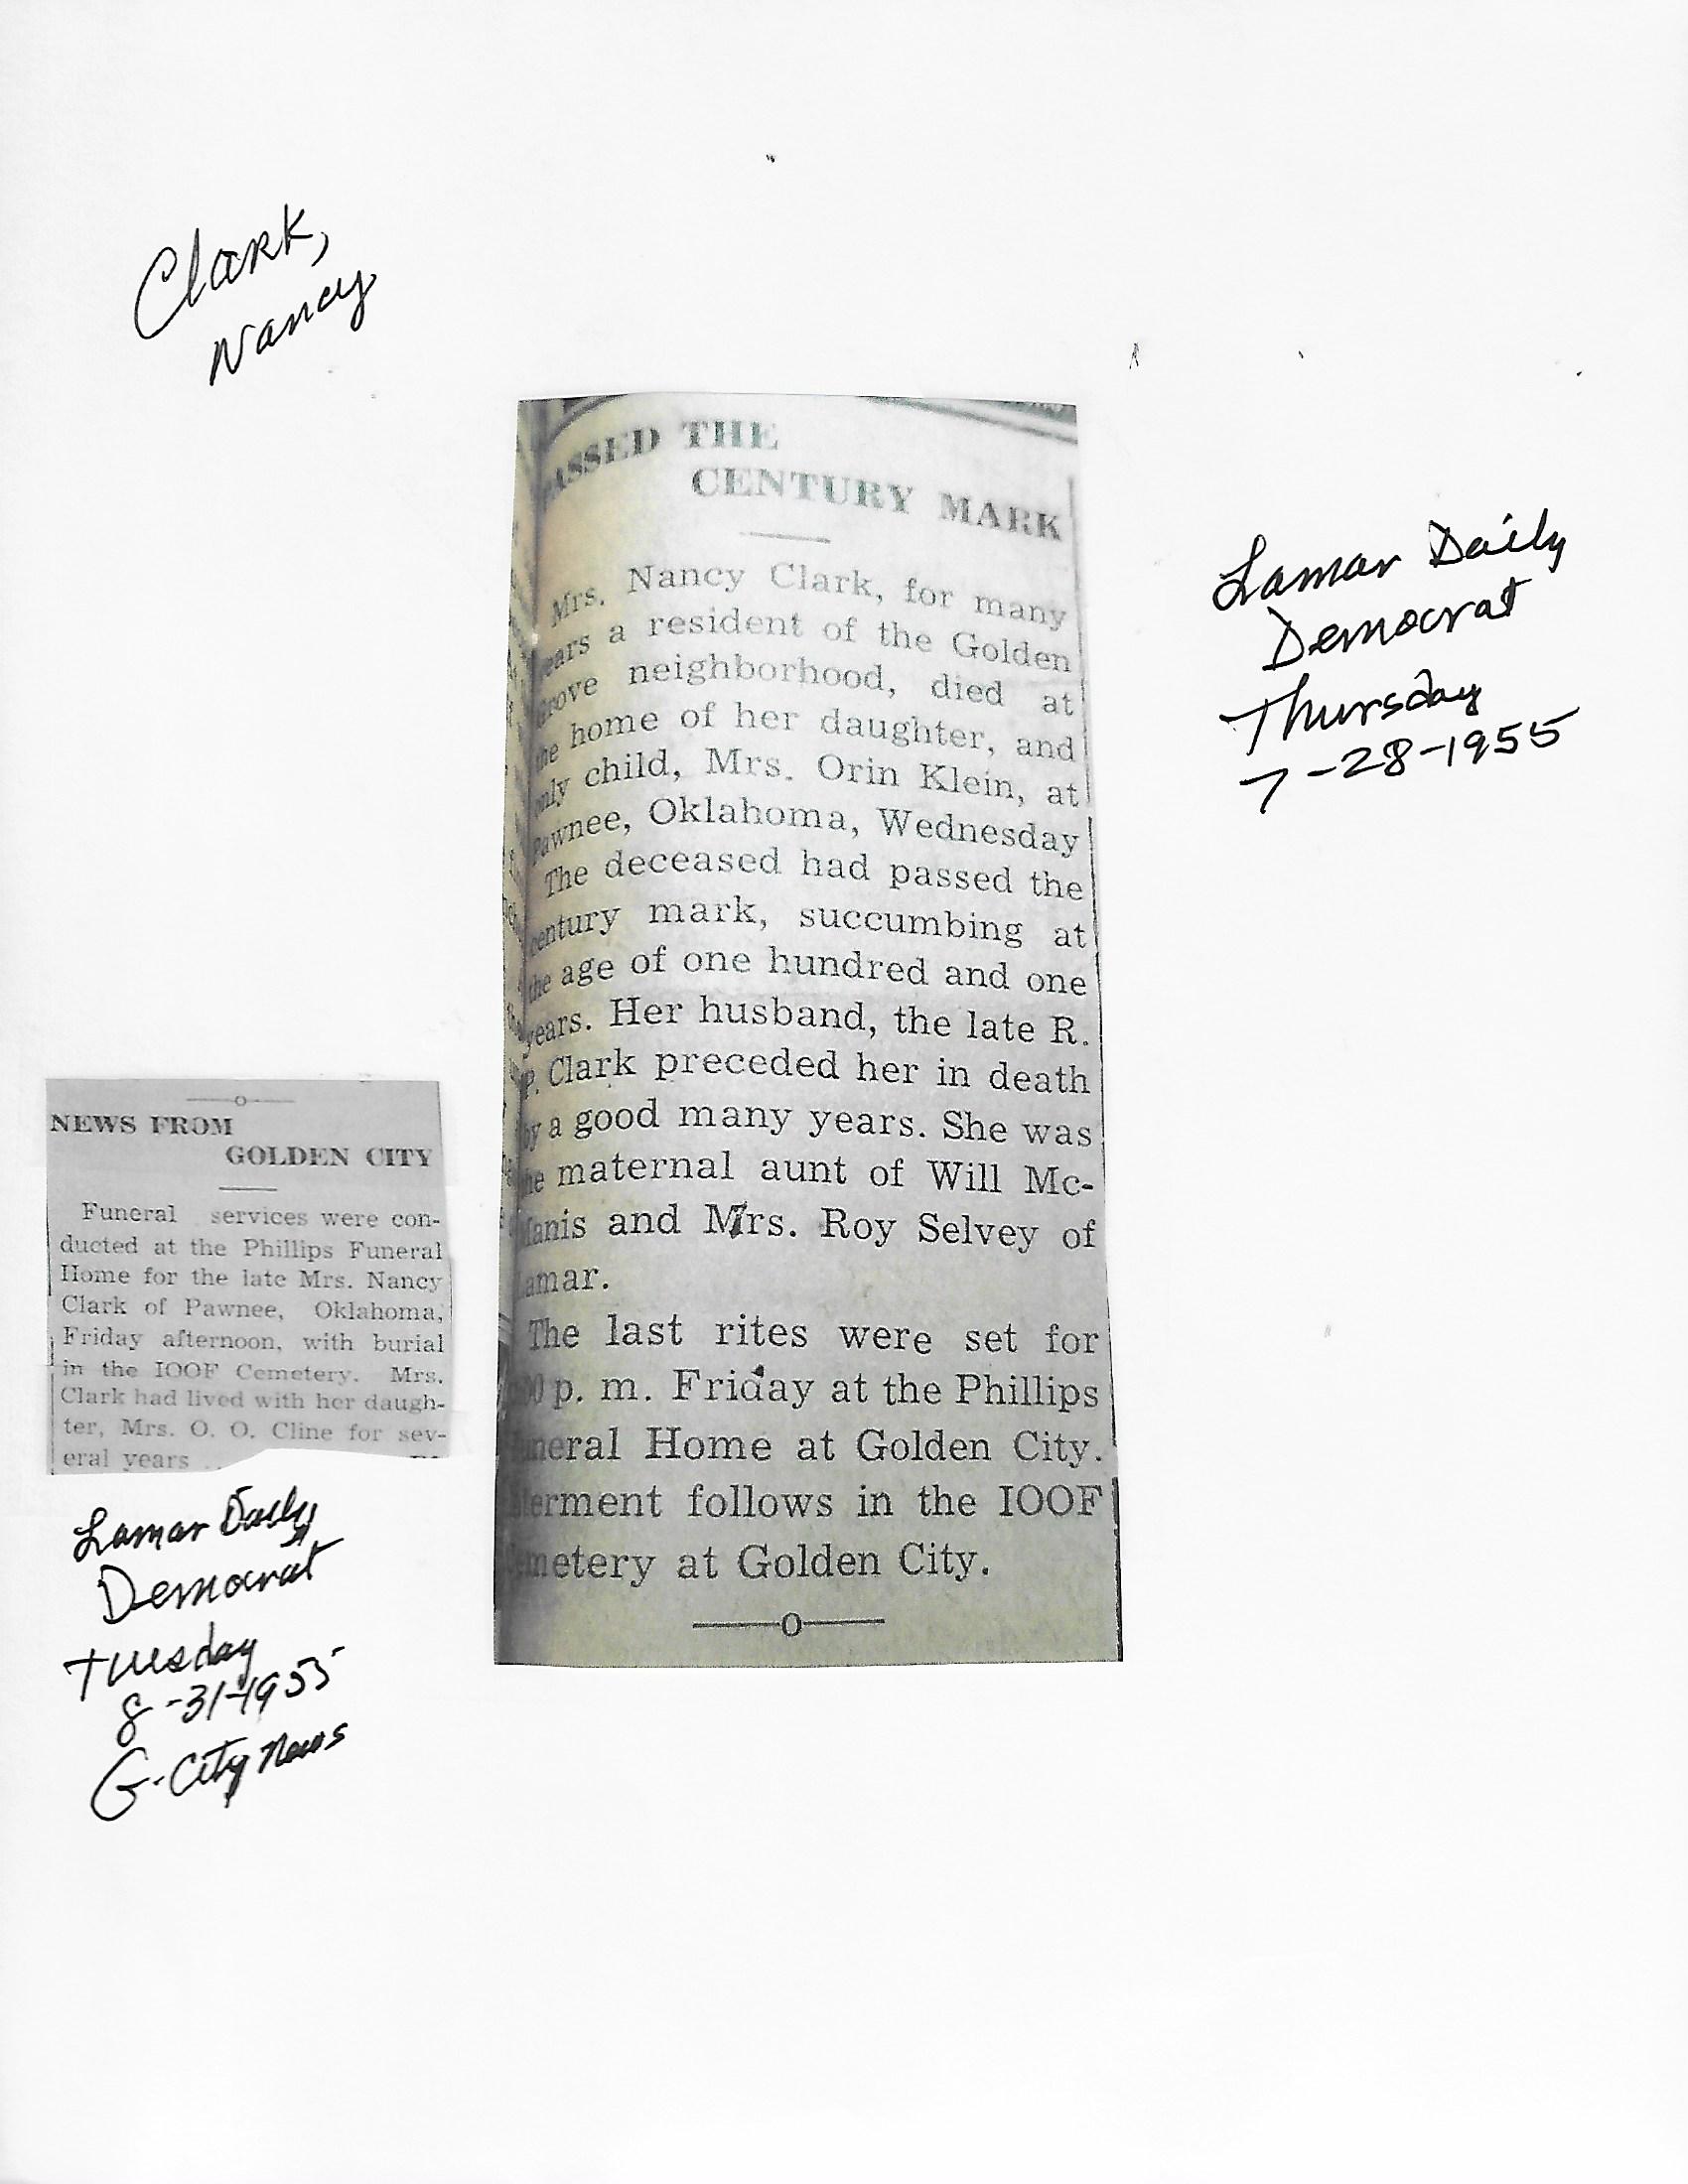 Clark,
Nancy
PASSED THE
CENTURY MARK
Mrs. Nancy Clark, for many
years a resident of the Golden
Grove neighborhood, died at
the home of her daughter, and
only child, Mrs. Orin Klein, at
Pawnee, Oklahoma, Wednesday
The deceased had passed the
century mark, succumbing at
the age of one hundred and one
years. Her husband, the late R.
P. Clark preceded her in death
by a good many years. She was
the maternal aunt of Will Mc-
Manis and Mrs. Roy Selvey of
Lamar.
The last rites were set for
p. m. Friday at the Phillips
Funeral Home at Golden City.
Interment follows in the IOOF
Cemetery at Golden City.
Lamar Daily
Democrat
Thursday
7-28-1955
NEWS FROM
GOLDEN CITY
Funeral services were con-
ducted at the Phillips Funeral
Home for the late Mrs. Nancy
Clark of Pawnee, Oklahoma,
Friday afternoon, with burial
in the IOOF Cemetery. Mrs.
Clark had lived with her daugh-
ter, Mrs. O. O. Cline for sev-
eral years
Lamar Daily
Democrat
Tuesday
8-31-1955
G-City News